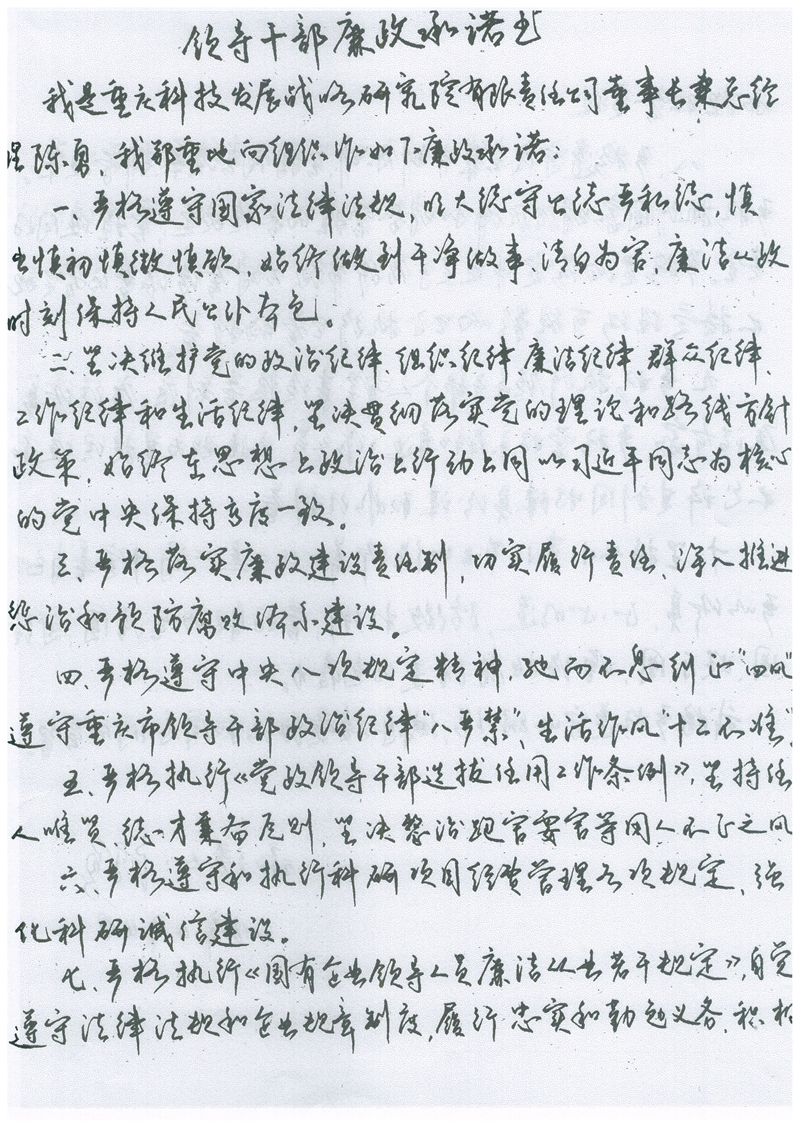 领导干部廉政承诺书
我是重庆科技发展战略研究院有限责任公司董事长兼总经
理陈勇，我郑重地向组织作如下廉政承诺：
一、严格遵守国家法律法规，明大德守公德严私德，慎
独慎初慎微慎欲，始终做到干净做事、清白为官、廉洁从政
时刻保持人民公仆本色。
二、坚决维护党的政治纪律、组织纪律、廉洁纪律、群众纪律、
工作纪律和生活纪律，坚决贯彻落实党的理论和路线方针
政策，始终在思想上政治上行动上同以习近平同志为核心
的党中央保持高度一致。
三、严格落实廉政建设责任制，切实履行责任，深入推进
惩治和预防腐败体系建设。
四、严格遵守中央八项规定精神，驰而不息纠正“四风”
遵守重庆市领导干部政治纪律“八严禁”、生活作风“十二不准”
五、严格执行《党政领导干部选拔任用工作条例》，坚持任
人唯贤、德才兼备原则，坚决整治跑官要官等用人不正之风
六、严格遵守和执行科研项目经费管理各项规定，强
化科研诚信建设。
七、严格执行《国有企业领导人员廉洁从业若干规定》，自觉
遵守法律法规和企业规章制度，履行忠实和勤勉义务，积极